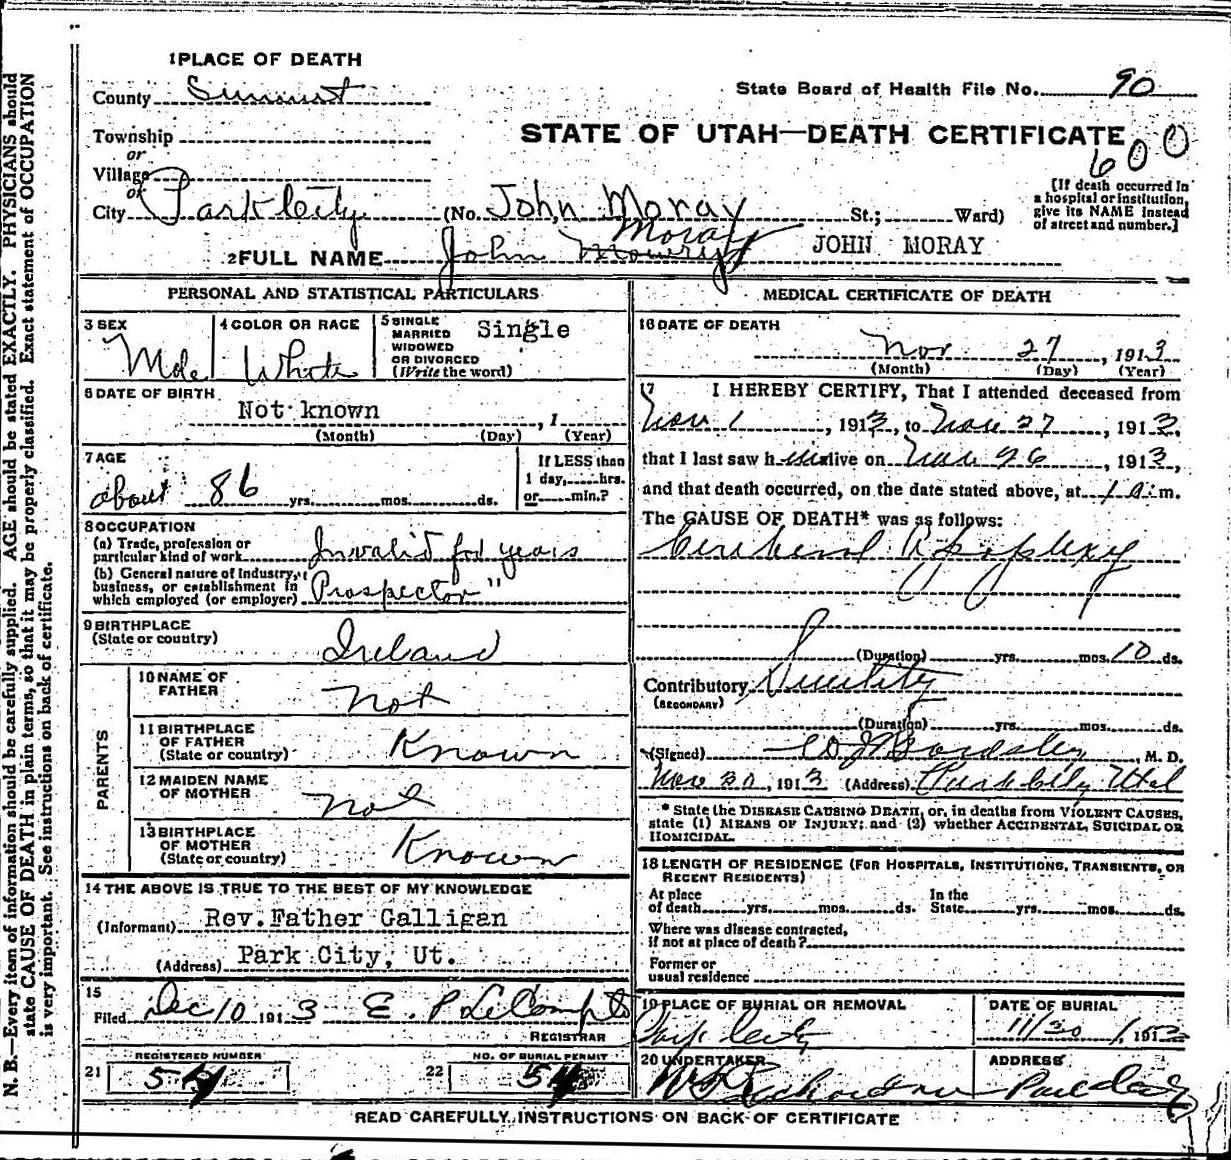 1 PLACE OF DEATH
County Summit
State Board of Health File No. 90
Township
STATE OF UTAH—DEATH CERTIFICATE
600
or
Village
or
City Park City (No. John Moray St.; Ward)
[If death occurred in
a hospital or institution,
give its NAME instead
of street and number.]
Moray
2 FULL NAME John Mowry JOHN MORAY
PERSONAL AND STATISTICAL PARTICULARS
3 SEX Male
4 COLOR OR RACE White
5 SINGLE
MARRIED
WIDOWED
OR DIVORCED
(Write the word) Single
6 DATE OF BIRTH
Not known , 1
(Month) (Day) (Year)
7 AGE
about 86 yrs. mos. ds.
If LESS than
1 day, hrs.
or min.?
8 OCCUPATION
(a) Trade, profession or
particular kind of work Invalid for years
(b) General nature of industry,
business, or establishment in
which employed (or employer) Prospector "
9 BIRTHPLACE
(State or country) Ireland
PARENTS
10 NAME OF
FATHER Not
11 BIRTHPLACE
OF FATHER
(State or country) Known
12 MAIDEN NAME
OF MOTHER Not
13 BIRTHPLACE
OF MOTHER
(State or country) Known
14 THE ABOVE IS TRUE TO THE BEST OF MY KNOWLEDGE
(Informant) Rev. Father Galligan
(Address) Park City, Ut.
15
Filed Dec 10 1913 E. P. LeCompte
REGISTRAR
REGISTERED NUMBER
21 54
NO. OF BURIAL PERMIT
22 54
MEDICAL CERTIFICATE OF DEATH
16 DATE OF DEATH
Nov 27, 1913
(Month) (Day) (Year)
17 I HEREBY CERTIFY, That I attended deceased from
Nov 1, 1913, to Nov 27, 1913,
that I last saw him alive on Nov 26, 1913,
and that death occurred, on the date stated above, at 1 a. m.
The CAUSE OF DEATH* was as follows:
Cerebral Apoplexy
(Duration) yrs. mos. 10 ds.
Contributory Senility
(SECONDARY)
(Duration) yrs. mos. ds.
(Signed) , M. D.
Nov 30, 1913 (Address) Park City Utah
* State the DISEASE CAUSING DEATH, or, in deaths from VIOLENT CAUSES,
state (1) MEANS OF INJURY; and (2) whether ACCIDENTAL, SUICIDAL OR
HOMICIDAL.
18 LENGTH OF RESIDENCE (FOR HOSPITALS, INSTITUTIONS, TRANSIENTS, OR
RECENT RESIDENTS)
At place
of death yrs. mos. ds.
In the
State yrs. mos. ds.
Where was disease contracted,
if not at place of death?
Former or
usual residence
19 PLACE OF BURIAL OR REMOVAL
Park City
DATE OF BURIAL
11/30, 1913
20 UNDERTAKER
Richardson
ADDRESS
Park City
READ CAREFULLY INSTRUCTIONS ON BACK OF CERTIFICATE
N. B.—Every item of information should be carefully supplied. AGE should be stated EXACTLY. PHYSICIANS should
state CAUSE OF DEATH in plain terms, so that it may be properly classified. Exact statement of OCCUPATION
is very important. See instructions on back of certificate.